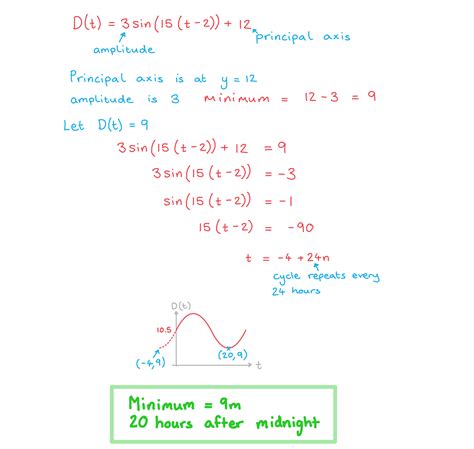 D(t) = 3 sin(15(t-2)) + 12
amplitude
principal axis
Principal axis is at y = 12
amplitude is 3 minimum = 12-3 = 9
Let D(t) = 9
3 sin(15(t-2)) + 12 = 9
3 sin(15(t-2)) = -3
sin(15(t-2)) = -1
15(t-2) = -90
t = -4 + 24n
cycle repeats every
24 hours
D(t)
10.5
(-4,9)
(20,9)
t
Minimum = 9m
20 hours after midnight